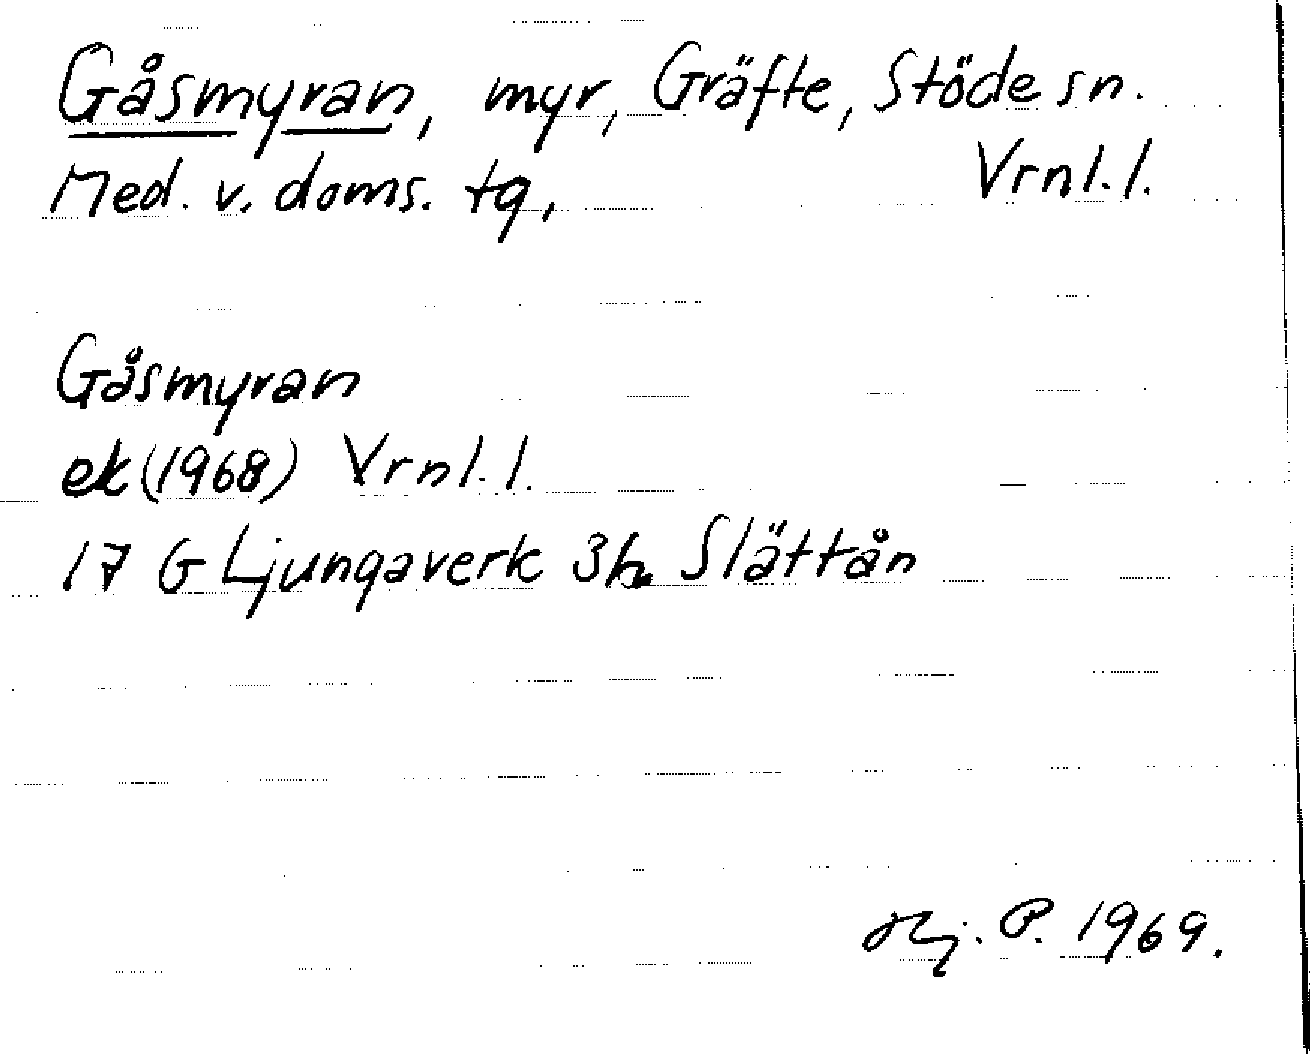 Gåsmyran, myr, Gräfte, Stöde sn.
Med. v. doms. tg, Vrnl. l.
Gåsmyran
ek (1968) Vrnl. l.
17 G Ljungaverk 3h. Slättån
Hj. P. 1969.